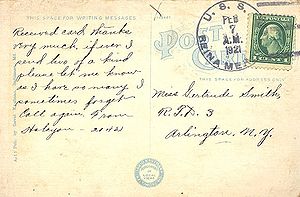 THIS SPACE FOR WRITING MESSAGES
Received card thanks
very much, if ever I
send two of a kind
please let me know
as I have so many I
sometimes forget.
Call again. From
20421
POST CARD
U. S. S.
FEB
7
A.M.
1921
REINA MER
THIS SPACE FOR ADDRESS ONLY
Miss Gertrude Smith,
R.F.D. 3
Arlington, N.Y.